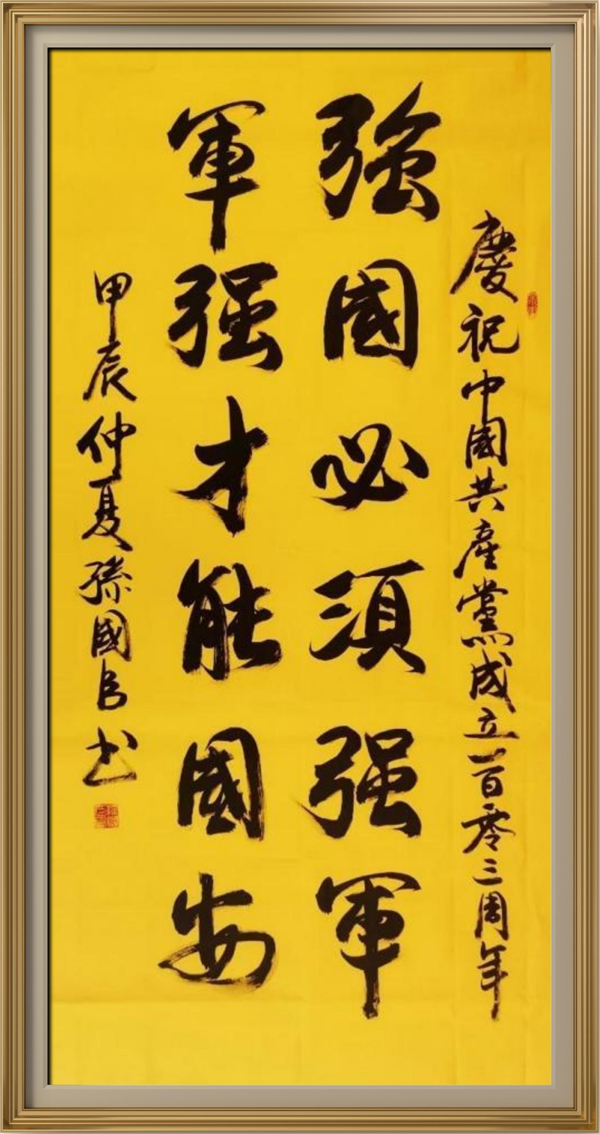 慶祝中國共產黨成立一百零三周年
強國必須强軍
軍强才能國安
甲辰仲夏孫國良书